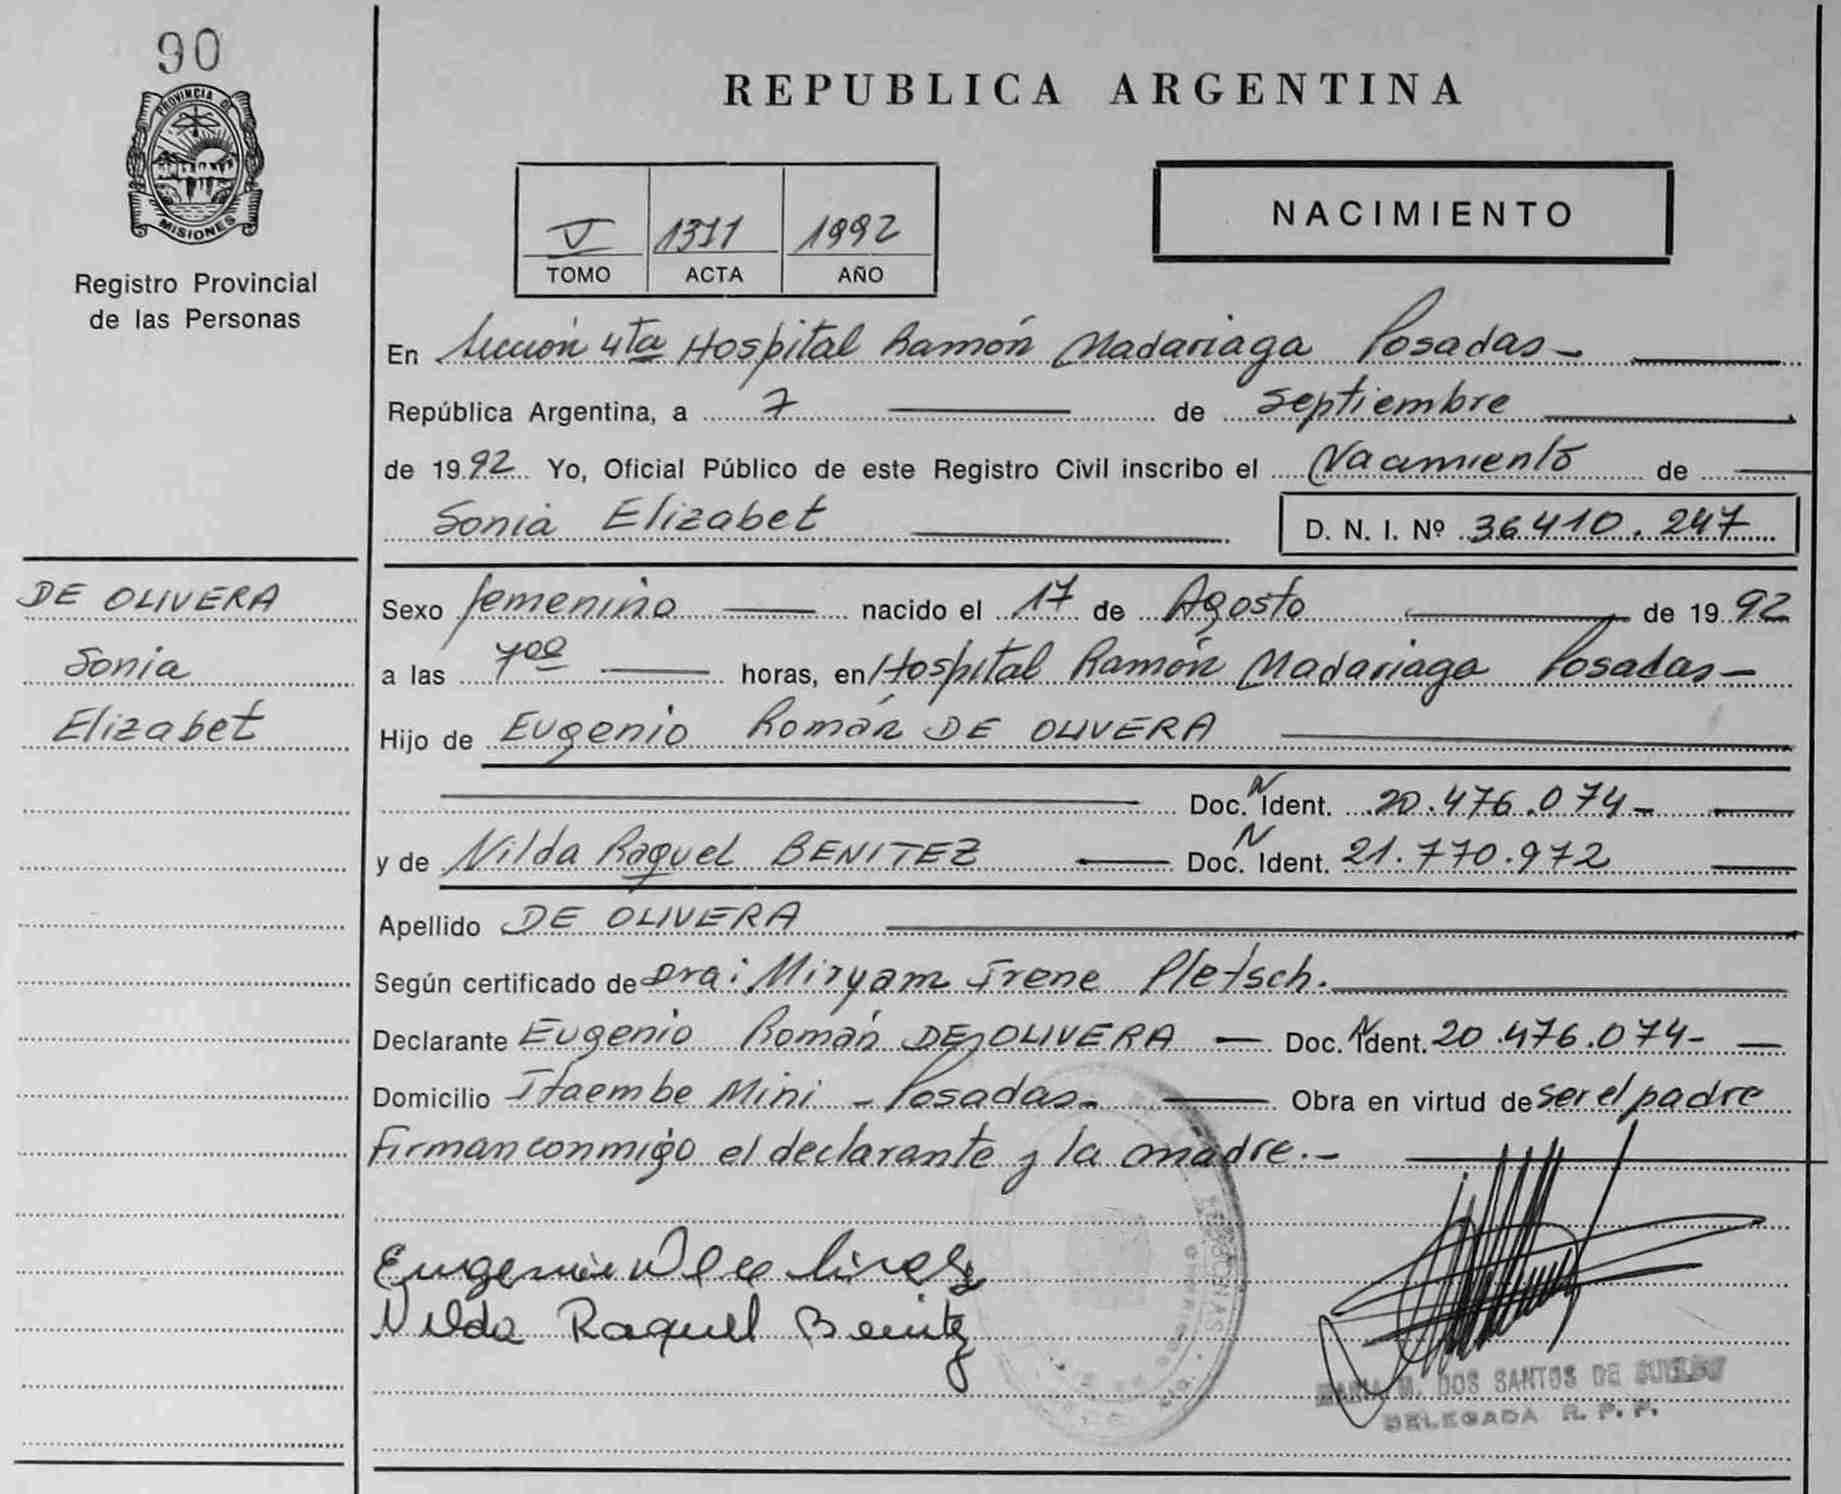 90
PROVINCIA DE
MISIONES
Registro Provincial
de las Personas
DE OLIVERA
Sonia
Elizabet
REPUBLICA ARGENTINA
V 1371 1992
TOMO ACTA AÑO
NACIMIENTO
En Sección 4ta Hospital Ramón Madariaga Posadas-
República Argentina, a 7 de septiembre
de 1992 Yo, Oficial Público de este Registro Civil inscribo el Nacimiento de
Sonia Elizabet D. N. I. Nº 36410.247
Sexo femenino nacido el 17 de Agosto de 1992
a las 700 horas, en Hospital Ramón Madariaga Posadas-
Hijo de Eugenio Román DE OLIVERA
Doc. N Ident. 20.476.074-
y de Nilda Raquel BENITEZ Doc. N Ident. 21.770.972
Apellido DE OLIVERA
Según certificado de Dra: Miryam Irene Pletsch.
Declarante Eugenio Román DE OLIVERA - Doc. N Ident. 20.476.074-
Domicilio Itaembe Mini - Posadas- Obra en virtud de ser el padre
Firman conmigo el declarante y la madre.-
Eugenio
Nilda Raquel Benitez
MARIA M. DOS SANTOS DE
DELEGADA R. P. P.